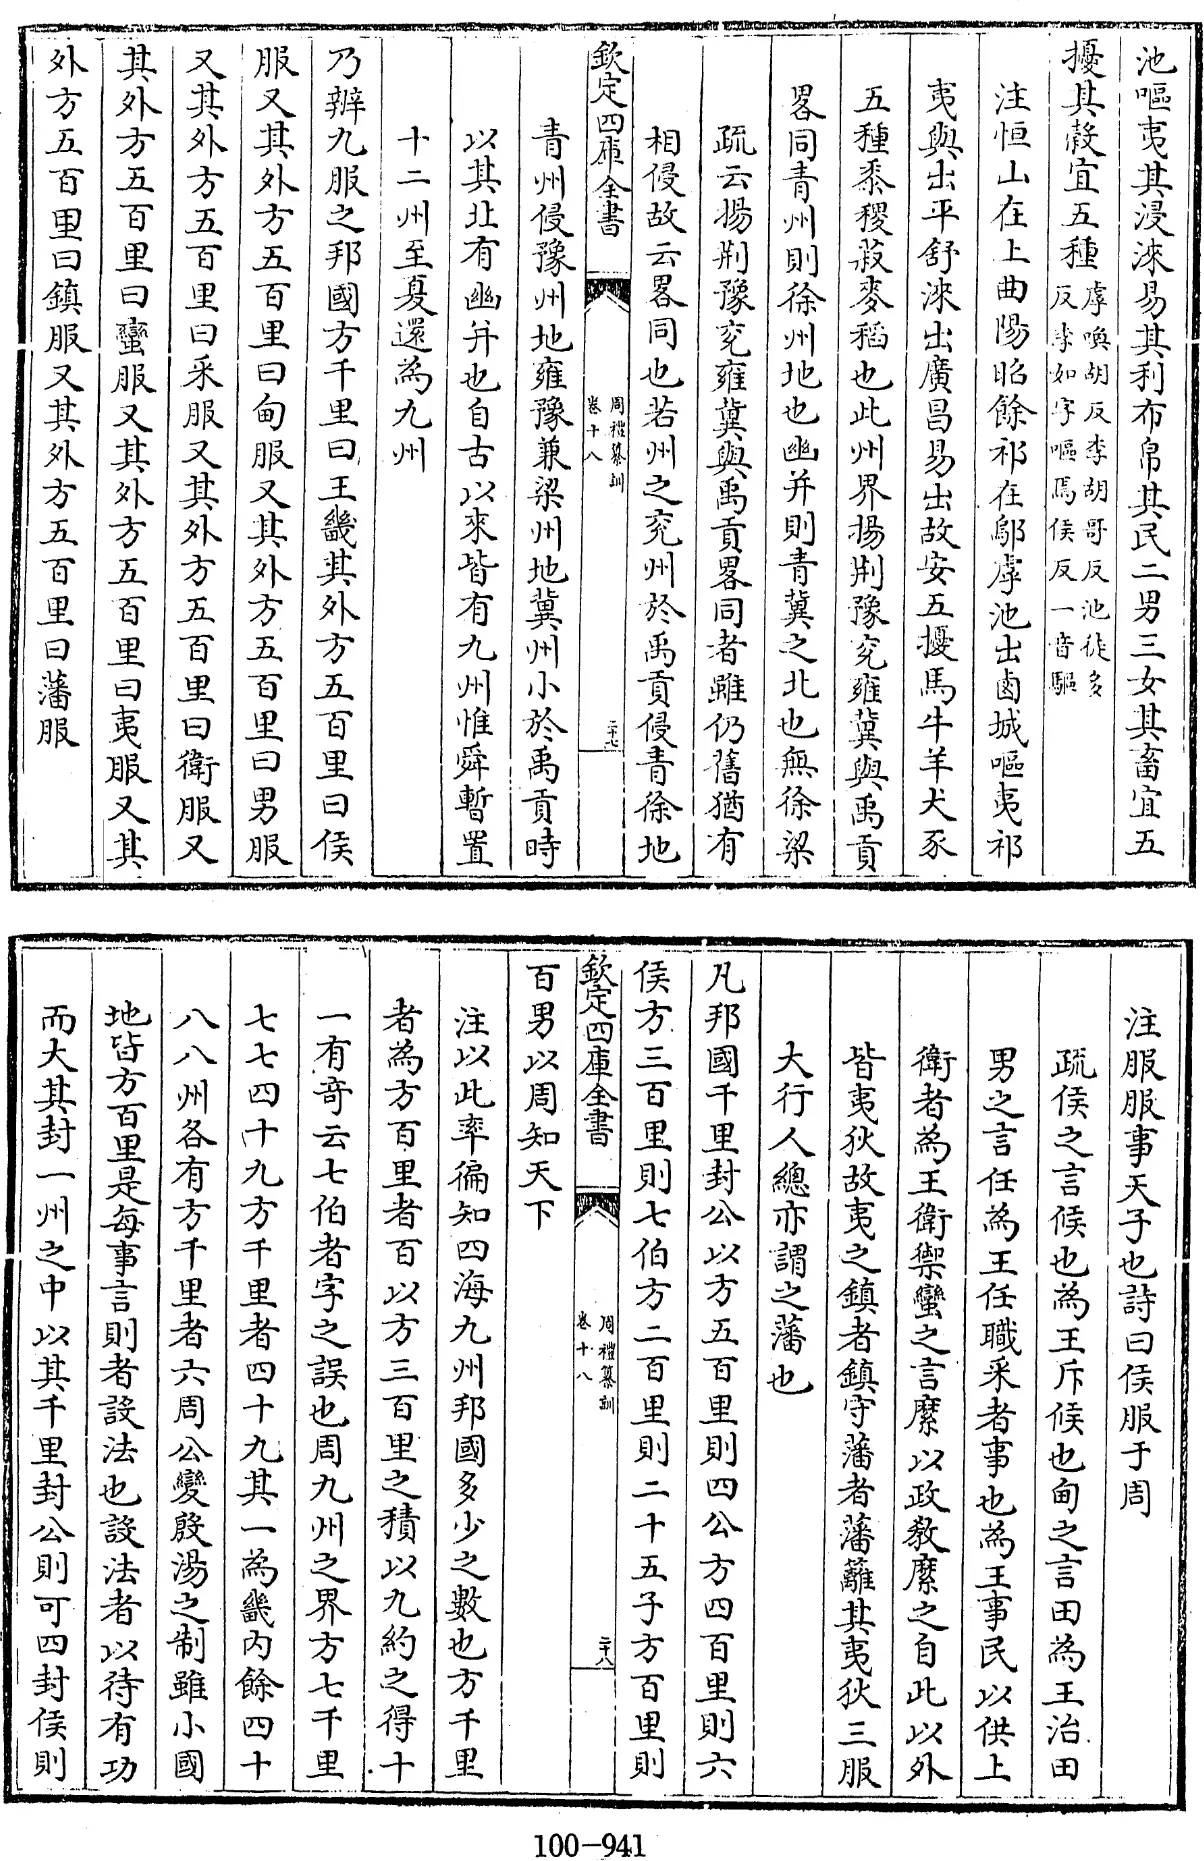 池嘔夷其浸淶易其利布帛其民二男三女其畜宜五
擾其穀宜五種虖喚胡反李胡哥反池徒多
反李如字嘔烏侯反一音驅
注恒山在上曲陽昭餘祁在鄔虖池出鹵城嘔夷祁
夷與出平舒淶出廣昌易出故安五擾馬牛羊犬豕
五種黍稷菽麥稻也此州界揚荆豫兖雍冀與禹貢
畧同青州則徐州地也幽并則青冀之北也無徐梁
疏云揚荆豫兖雍冀與禹貢畧同者雖仍舊猶有
相侵故云畧同也若州之兖州於禹貢侵青徐地
欽定四庫全書
周禮纂訓
卷十八
二十七
青州侵豫州地雍豫兼梁州地冀州小於禹貢時
以其北有幽并也自古以來皆有九州惟舜暫置
十二州至夏還為九州
乃辨九服之邦國方千里曰王畿其外方五百里曰侯
服又其外方五百里曰甸服又其外方五百里曰男服
又其外方五百里曰采服又其外方五百里曰衛服又
其外方五百里曰蠻服又其外方五百里曰夷服又其
外方五百里曰鎮服又其外方五百里曰藩服
注服服事天子也詩曰侯服于周
疏侯之言候也為王斥候也甸之言田為王治田
男之言任為王任職采者事也為王事民以供上
衛者為王衛禦蠻之言縻以政敎縻之自此以外
皆夷狄故夷之鎮者鎮守藩者藩籬其夷狄三服
大行人總亦謂之藩也
凡邦國千里封公以方五百里則四公方四百里則六
侯方三百里則七伯方二百里則二十五子方百里則
欽定四庫全書
周禮纂訓
卷十八
二十八
百男以周知天下
注以此率徧知四海九州邦國多少之數也方千里
者為方百里者百以方三百里之積以九約之得十
一有竒云七伯者字之誤也周九州之界方七千里
七七四十九方千里者四十九其一為畿内餘四十
八八州各有方千里者六周公變殷湯之制雖小國
地皆方百里是每事言則者設法也設法者以待有功
而大其封一州之中以其千里封公則可四封侯則
100-941